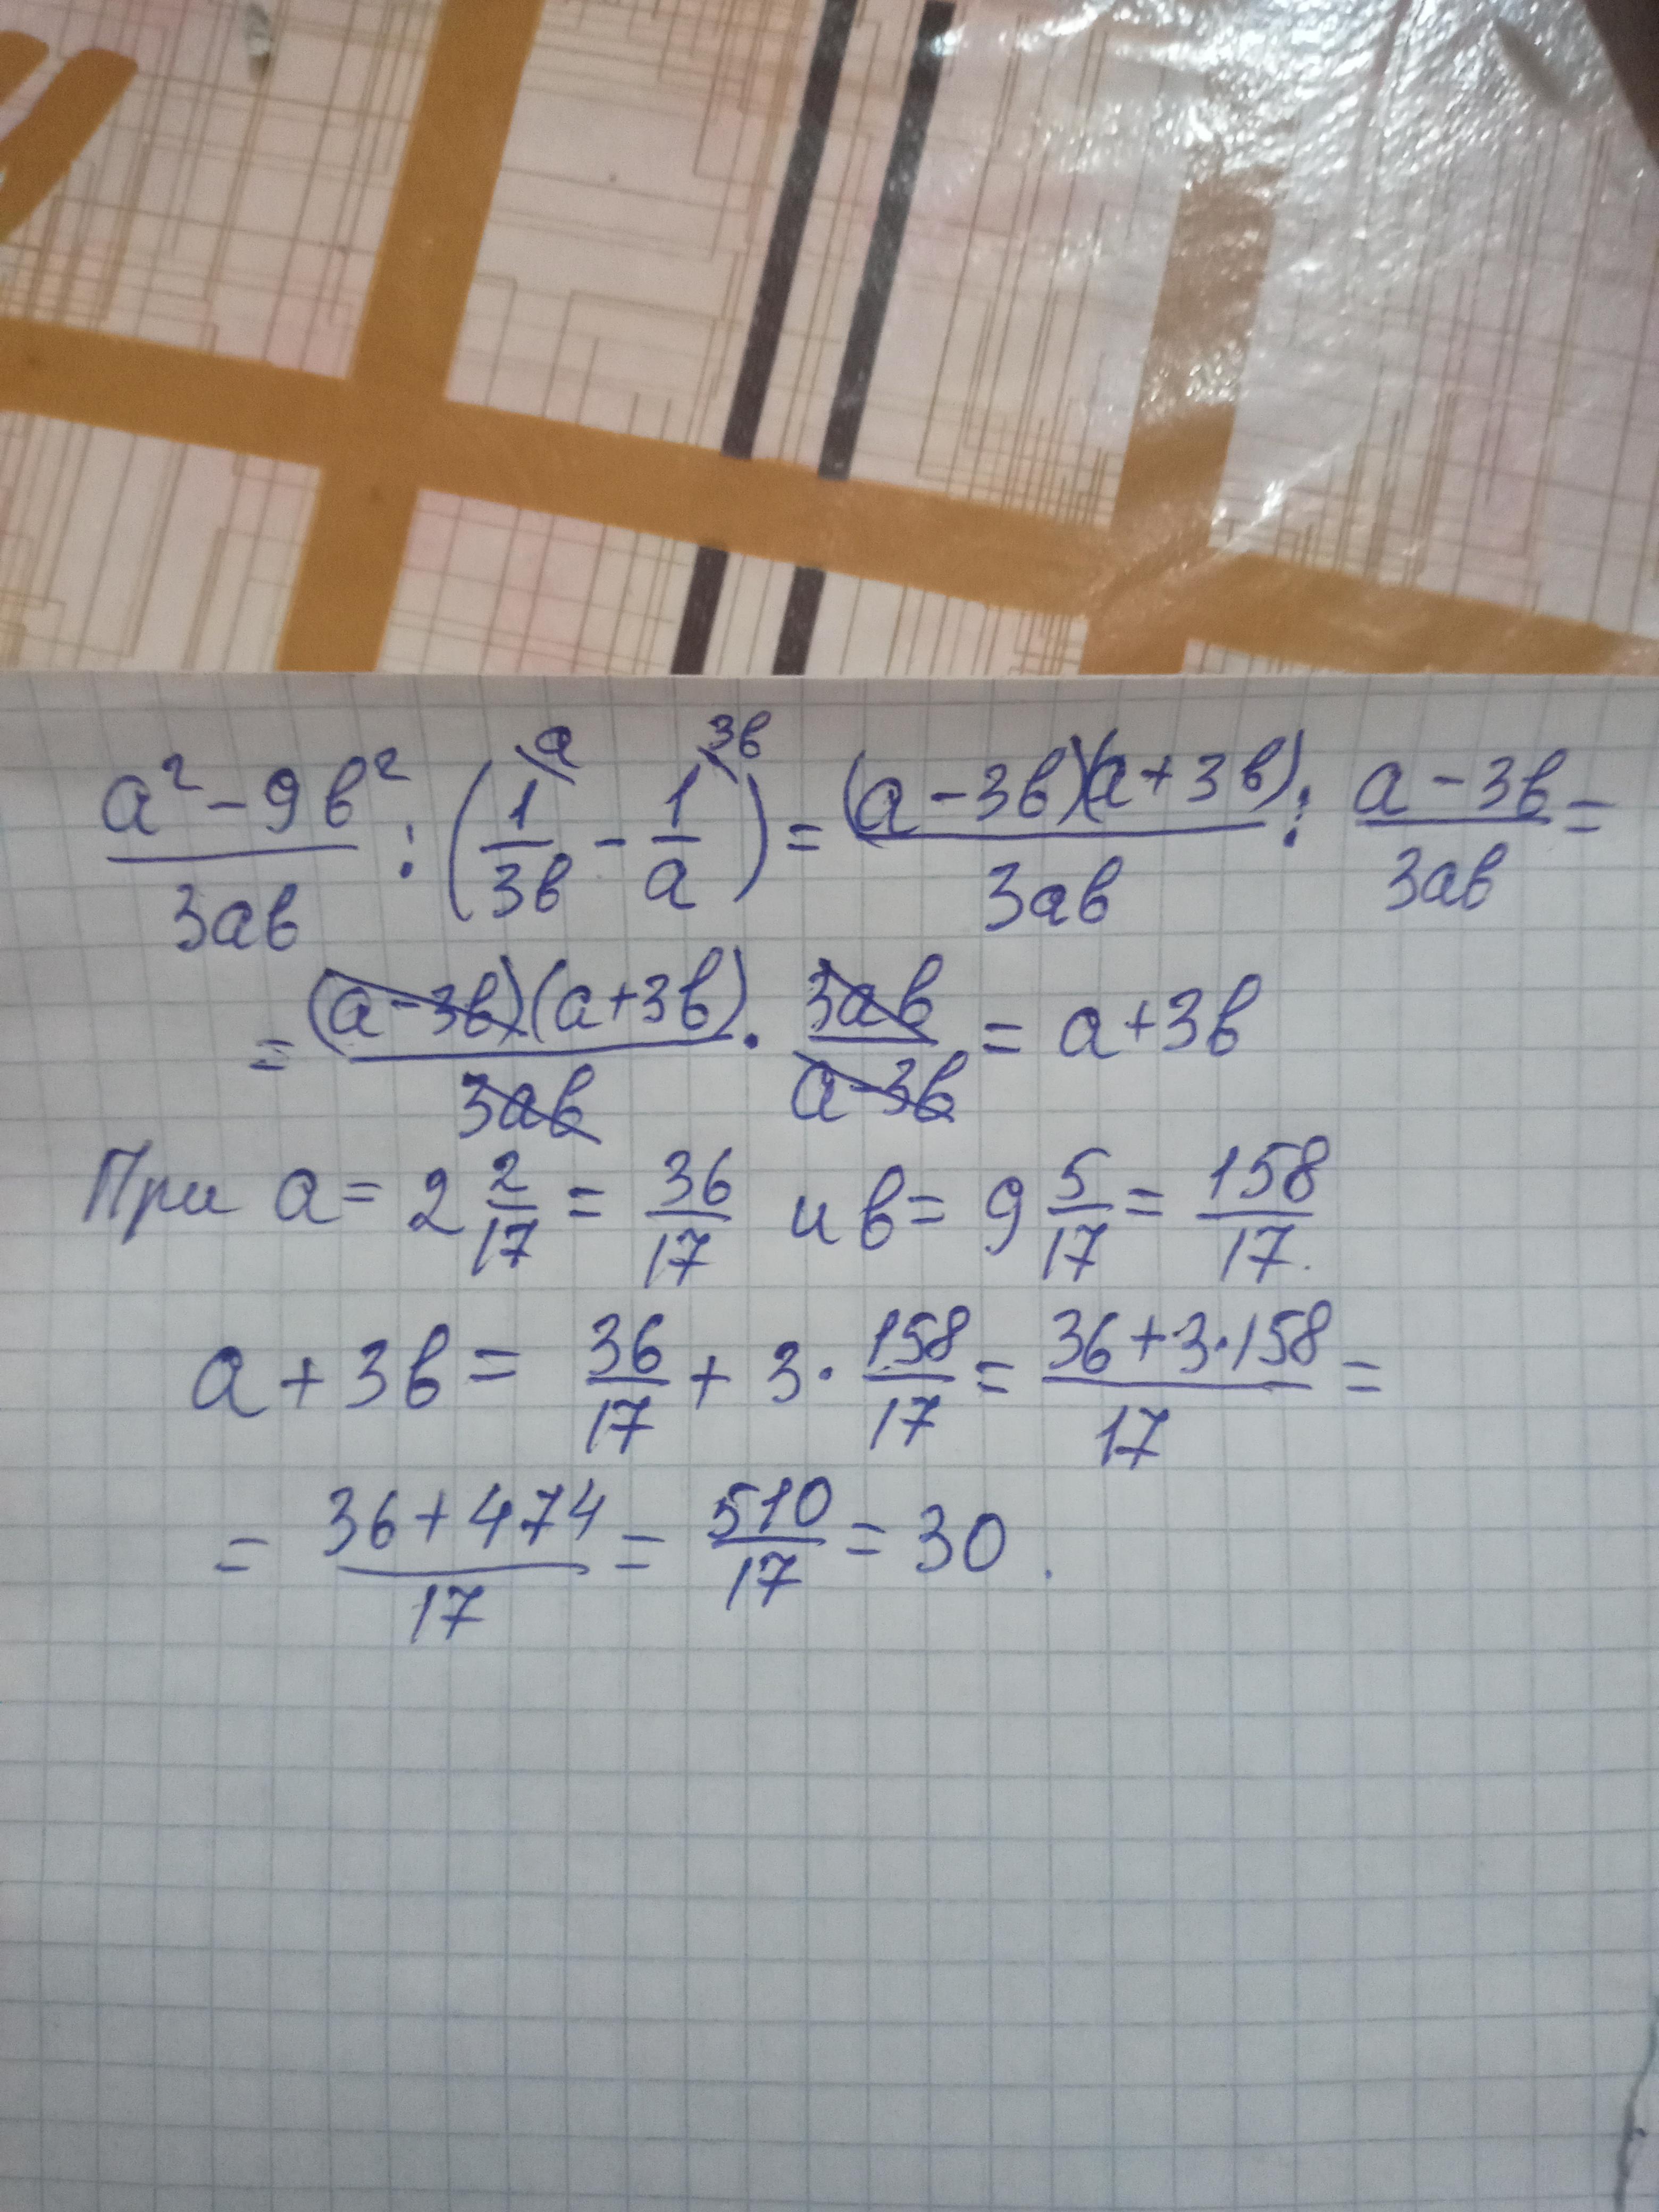 a² - 9в² / 3ав : (1/3в ᵃ - 1/а ³ᵛ) = (а - 3в)(а + 3в) / 3ав : а - 3в / 3ав =
= (а - 3в)(а + 3в) / 3ав · 3ав / а - 3в = а + 3в
При а = 2 2/17 = 36/17 и в = 9 5/17 = 158/17.
а + 3в = 36/17 + 3 · 158/17 = 36 + 3 · 158 / 17 =
= 36 + 474 / 17 = 510/17 = 30.